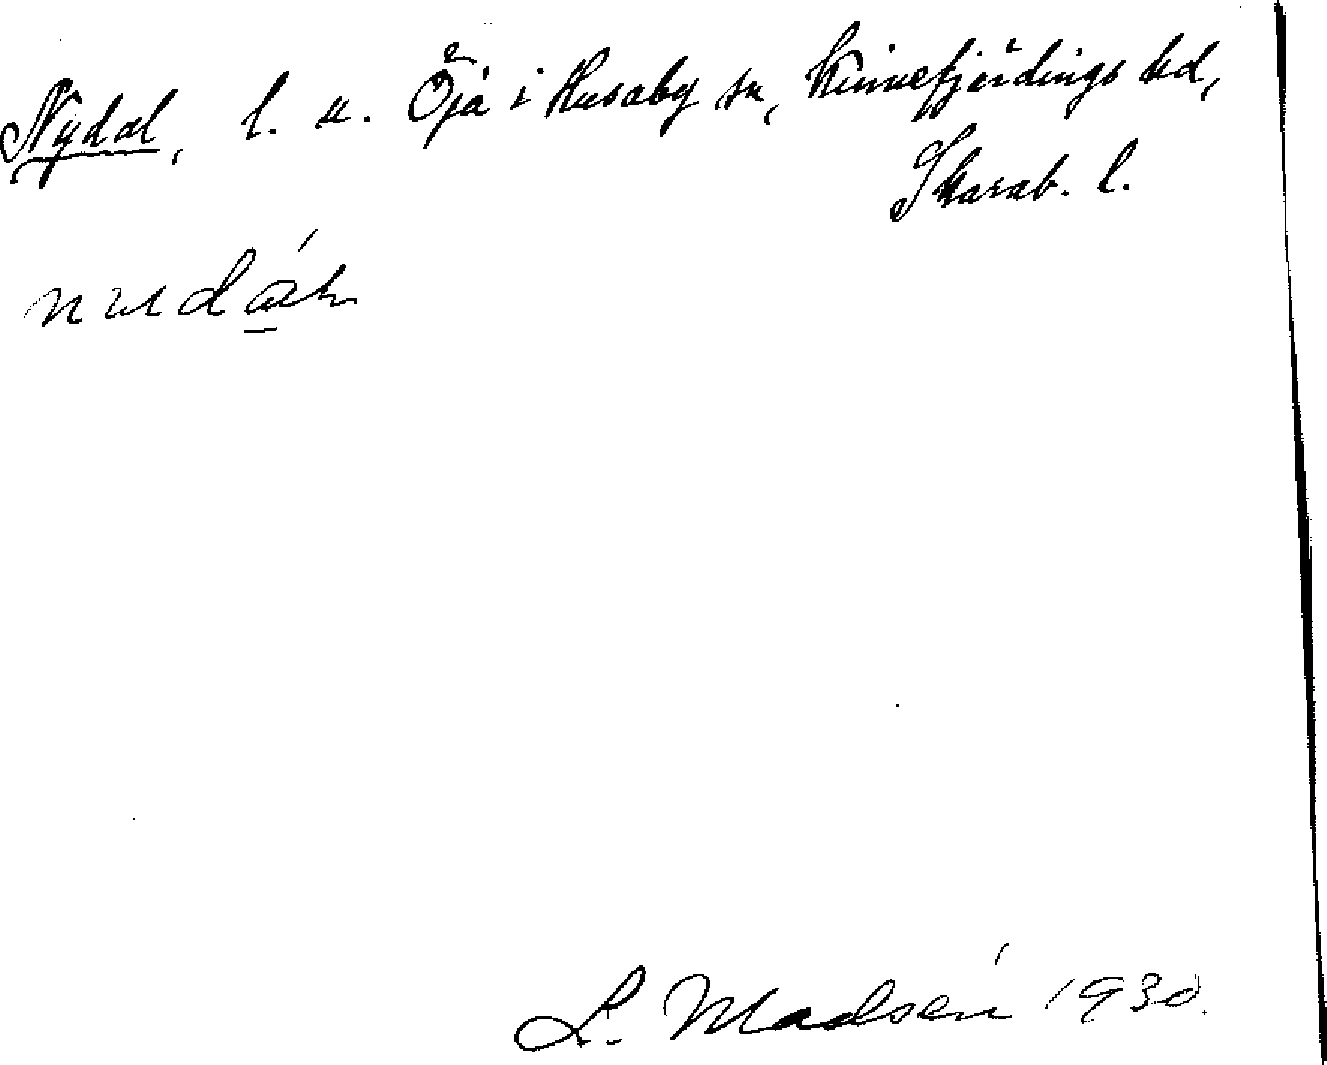 Nydal, l. u. Öjá i Husaby sn, Kinnefjärdings hd,
Skarab. l.
L. Madsén 1930.